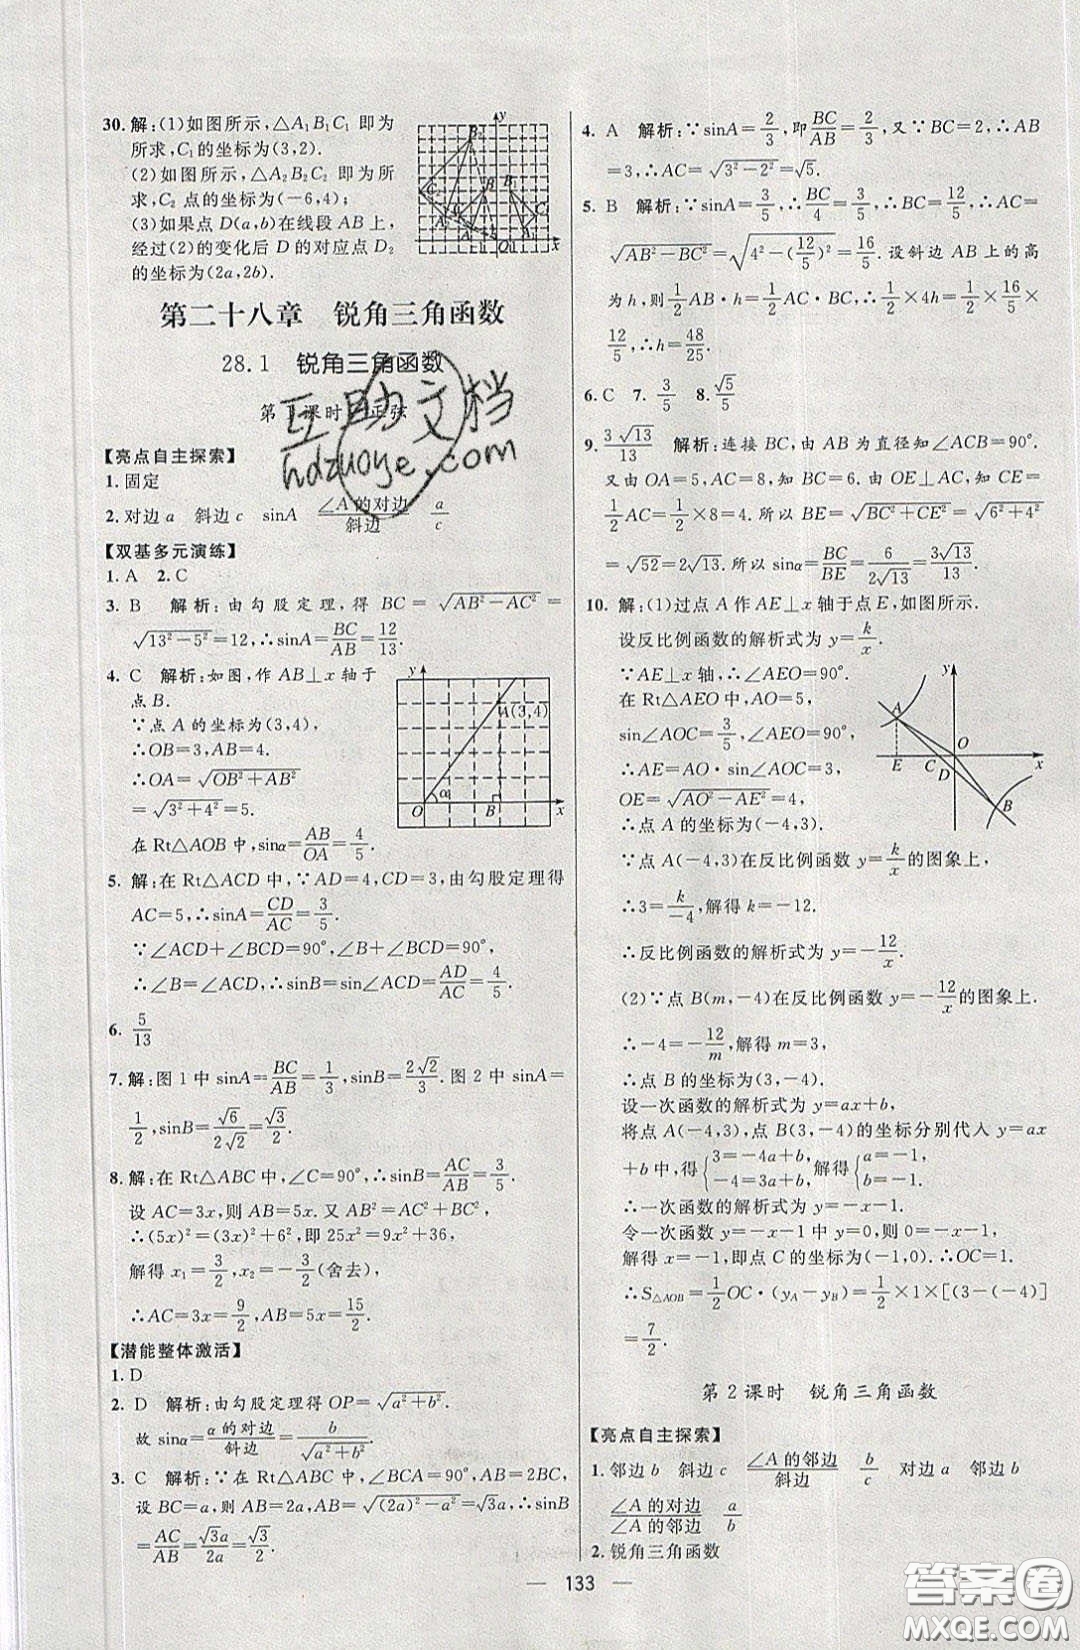 30.解:(1)如图所示,△A₁B₁C₁ 即为
所求,C₁的坐标为(3,2).
(2)如图所示,△A₂B₂C₂ 即为所
求,C₂ 点的坐标为(-6,4);
(3)如果点 D(a,b)在线段 AB 上,
经过(2)的变化后 D 的对应点 D₂
的坐标为(2a,2b).
第二十八章 锐角三角函数
28.1 锐角三角函数
第1课时 正弦
互助文档
hdzuoye.com
【亮点自主探索】
1.固定
2.对边a 斜边c sinA ∠A的对边/斜边 a/c
【双基多元演练】
1.A 2.C
3. B 解析:由勾股定理,得 BC=√(AB²-AC²)=
√(13²-5²)=12,∴sinA=BC/AB=12/13.
4. C 解析:如图,作 AB⊥x 轴于
点 B.
∵点 A 的坐标为(3,4),
∴OB=3,AB=4.
∴OA=√(OB²+AB²)
=√(3²+4²)=5.
在 Rt△AOB 中,sinα=AB/OA=4/5.
A(3,4)
O α B x
5. 解:在 Rt△ACD 中,∵AD=4,CD=3,由勾股定理得
AC=5,∴sinA=CD/AC=3/5.
∵∠ACD+∠BCD=90°,∠B+∠BCD=90°,
∴∠B=∠ACD,∴sinB=sin∠ACD=AD/AC=4/5.
6. 5/13
7. 解:图 1 中 sinA=BC/AB=1/3,sinB=2√2/3.图 2 中 sinA=
1/2,sinB=√6/2√2=√3/2.
8. 解:在 Rt△ABC 中,∠C=90°,∵sinB=AC/AB=3/5.
设 AC=3x,则 AB=5x.又 AB²=AC²+BC²,
∴(5x)²=(3x)²+6²,即 25x²=9x²+36,
解得 x₁=3/2,x₂=-3/2(舍去),
∴AC=3x=9/2,AB=5x=15/2.
【潜能整体激活】
1. D
2. D 解析:由勾股定理得 OP=√(a²+b²).
故 sinα=α的对边/斜边=b/√(a²+b²).
3. C 解析:∵在 Rt△ABC 中,∠BCA=90°,AB=2BC,
设 BC=a,则 AB=2a,AB=√((2a)²-a²)=√3a,∴sinB
=AC/AB=√3a/2a=√3/2.
4. A 解析:∵sinA=2/3,即BC/AB=2/3,又∵BC=2,∴AB
=3,∴AC=√(3²-2²)=√5.
5. B 解析:∵sinA=3/5,∴BC/4=3/5,∴BC=12/5,∴AC=
√(AB²-BC²)=√(4²-(12/5)²)=16/5.设斜边 AB 上的高
为h,则1/2AB·h=1/2AC·BC,∴1/2×4h=1/2×16/5×
12/5,∴h=48/25.
6. C 7. 3/5 8. √5/5
9. 3√13/13 解析:连接 BC,由 AB 为直径知∠ACB=90°.
又由 OA=5,AC=8,知 BC=6.由 OE⊥AC,知 CE=
1/2AC=1/2×8=4.所以 BE=√(BC²+CE²)=√(6²+4²)
=√52=2√13.所以 sinα=BC/BE=6/2√13=3√13/13.
10. 解:(1)过点 A 作 AE⊥x 轴于点 E,如图所示.
设反比例函数的解析式为 y=k/x.
∵AE⊥x 轴,∴∠AEO=90°.
在 Rt△AEO 中,AO=5,
sin∠AOC=3/5,∠AEO=90°,
∴AE=AO·sin∠AOC=3,
OE=√(AO²-AE²)=4,
∴点 A 的坐标为(-4,3).
y
A
O
E C D x
B
∵点 A(-4,3)在反比例函数 y=k/x的图象上,
∴3=k/-4,解得 k=-12.
∴反比例函数的解析式为 y=-12/x.
(2)∵点 B(m,-4)在反比例函数 y=-12/x的图象上.
∴-4=-12/m,解得 m=3,
∴点 B 的坐标为(3,-4).
设一次函数的解析式为 y=ax+b,
将点 A(-4,3),点 B(3,-4)的坐标分别代入 y=ax
+b中,得{3=-4a+b,-4=3a+b,解得{a=-1,b=-1.
∴一次函数的解析式为 y=-x-1.
令一次函数 y=-x-1 中 y=0,则 0=-x-1,
解得 x=-1,即点 C 的坐标为(-1,0).∴OC=1.
∴S△AOB=1/2OC·(yA-yB)=1/2×1×[(3-(-4)]
=7/2.
第 2 课时 锐角三角函数
【亮点自主探索】
1. 邻边b 斜边c ∠A的邻边/斜边 b/c 对边a 邻边b
∠A的对边/∠A的邻边 a/b
2. 锐角三角函数
— 133 —
答案圈
MXQE.COM